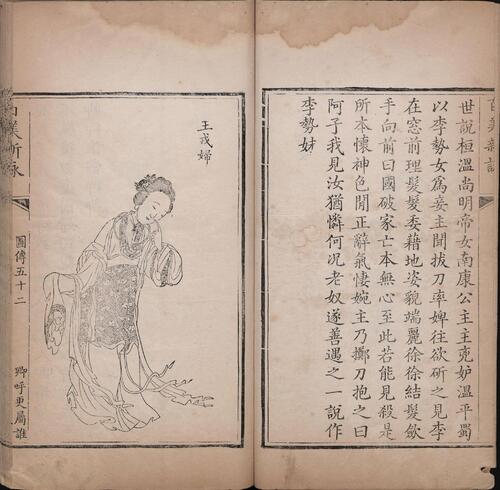 世說桓溫尚明帝女南康公主主兇妒溫平蜀
以李勢女爲妾主聞拔刀率婢往欲斫之見李
在窓前理髮髮委藉地姿貌端麗徐徐結髮斂
手向前曰國破家亡本無心至此若能見殺是
所本懷神色閒正辭氣悽婉主乃擲刀抱之曰
阿子我見汝猶憐何況老奴遂善遇之一說作
李勢妹
王戎婦
百美新詠
圖傳五十二
卿呼更屬誰